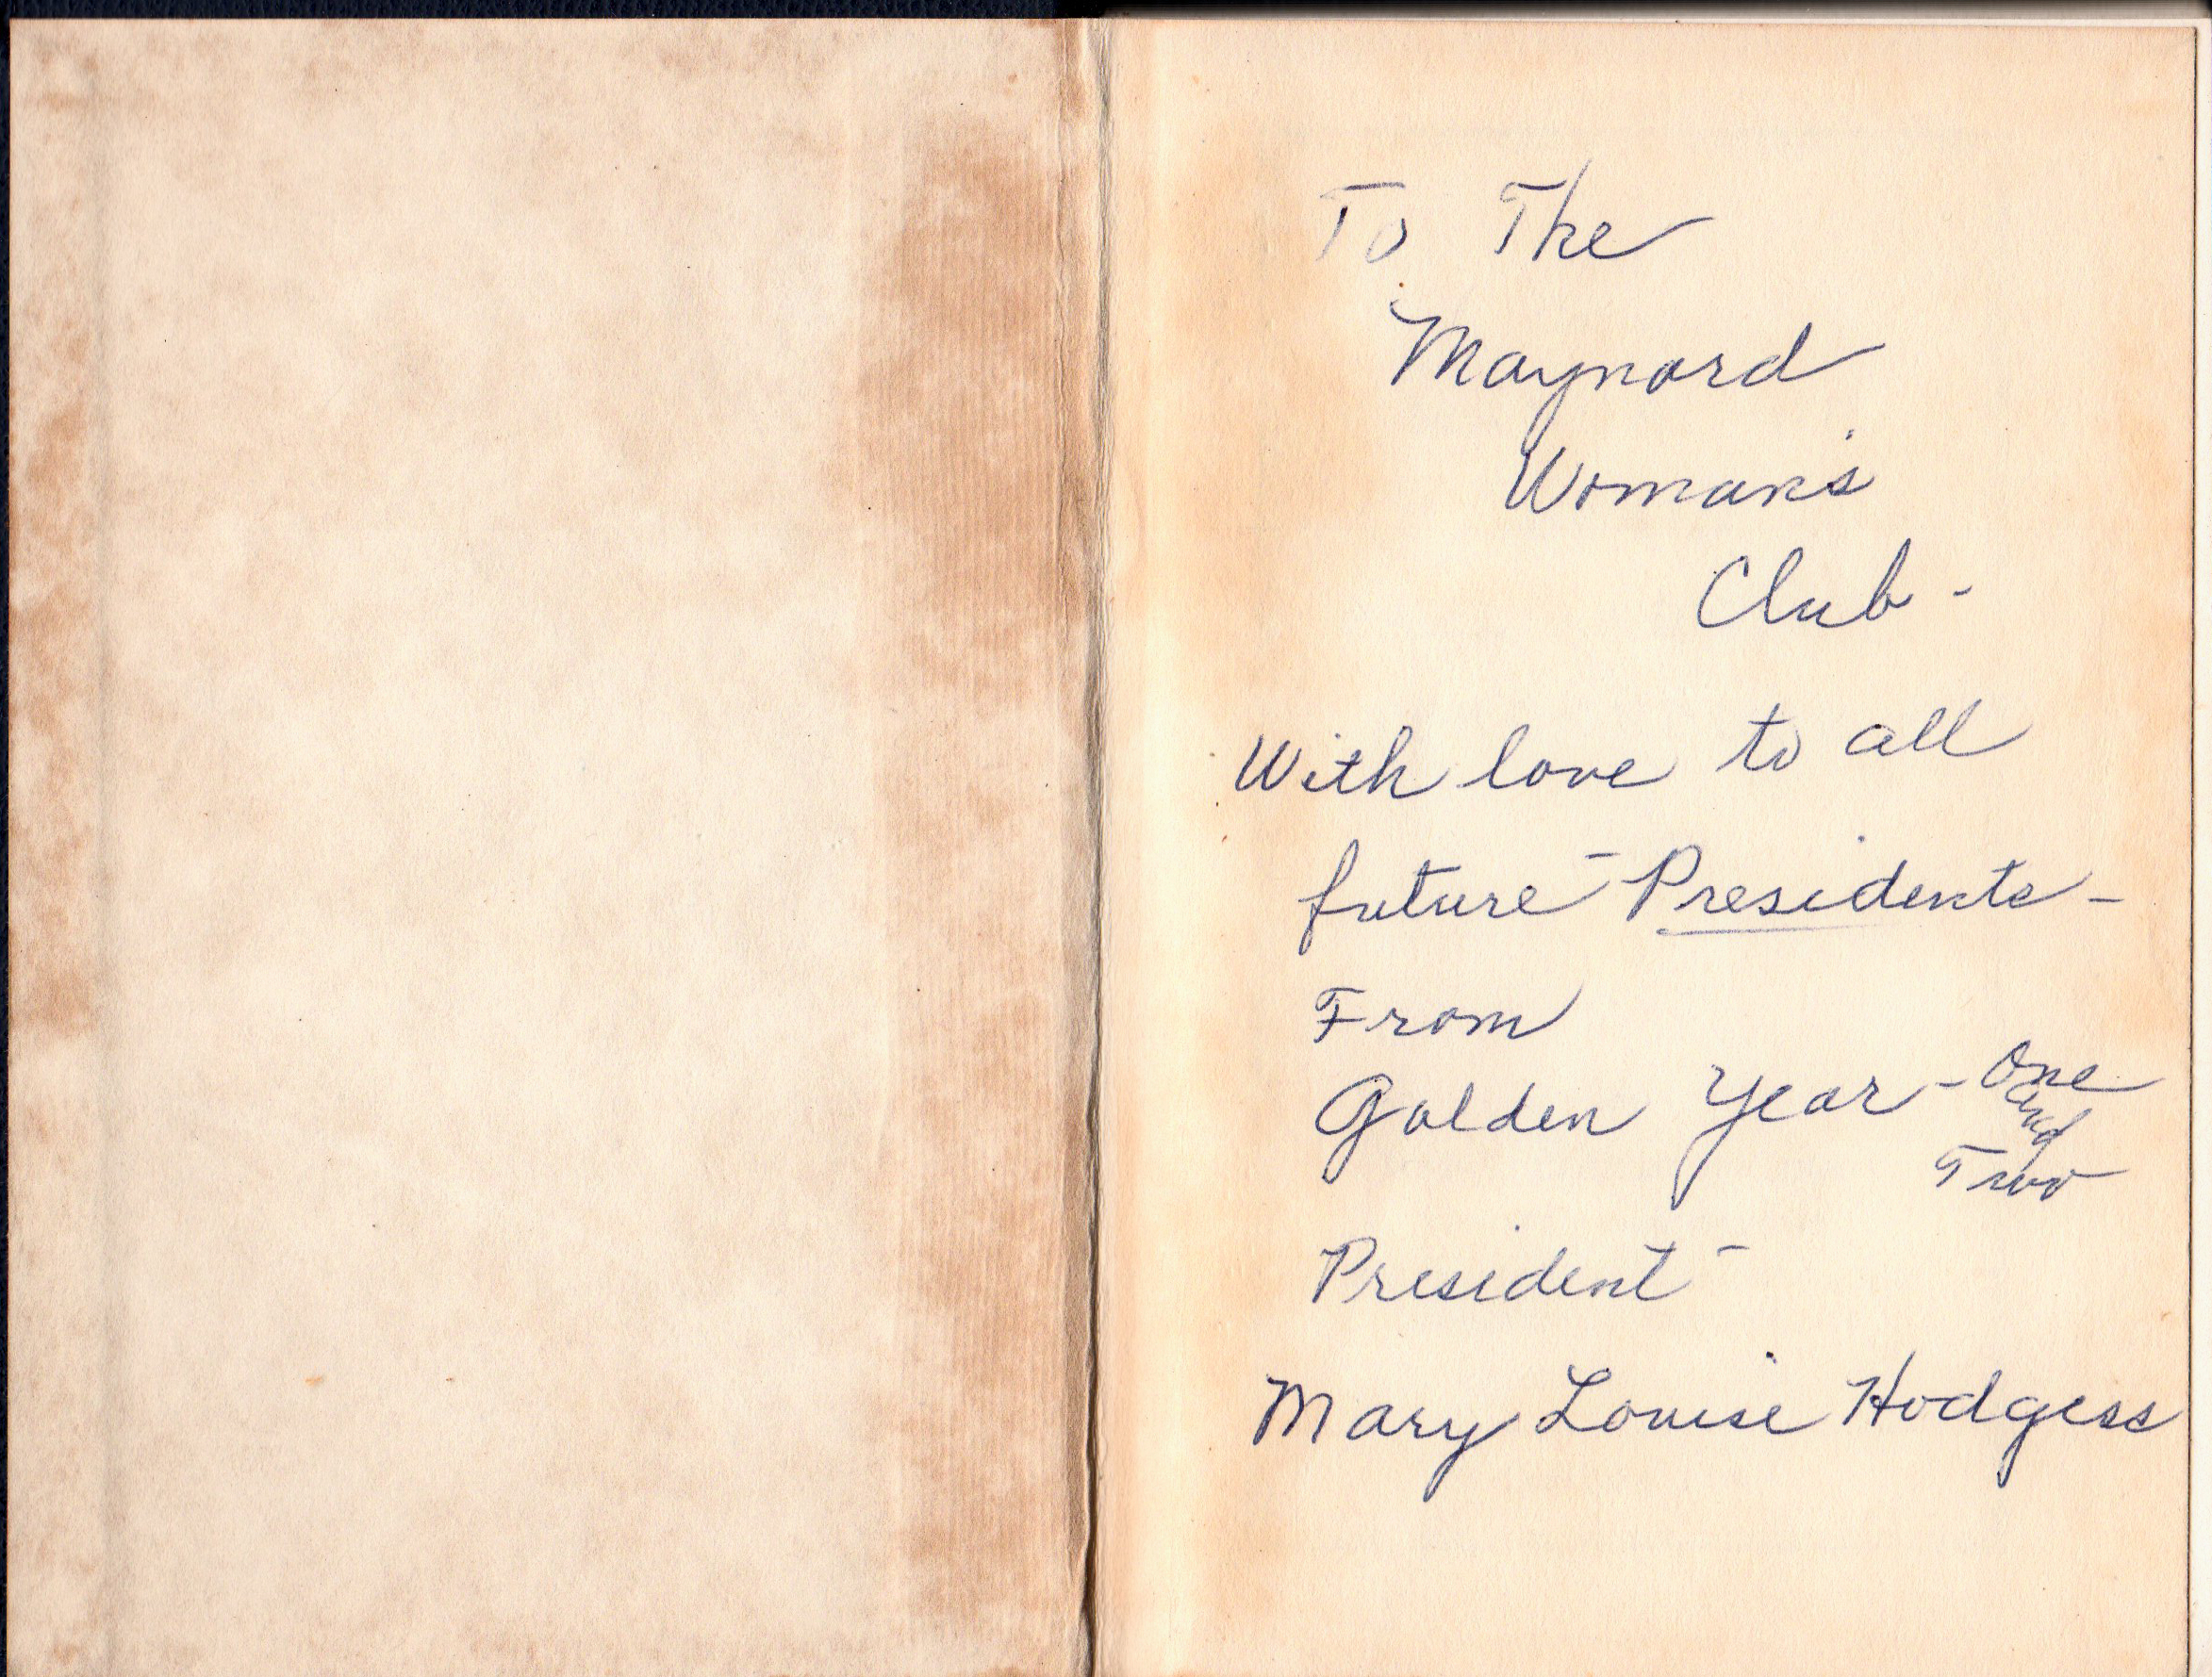 To The
Maynard
Woman's
Club -
With love to all
future - Presidents -
From
Golden Year - One
and
Two
President -
Mary Louise Hodgess